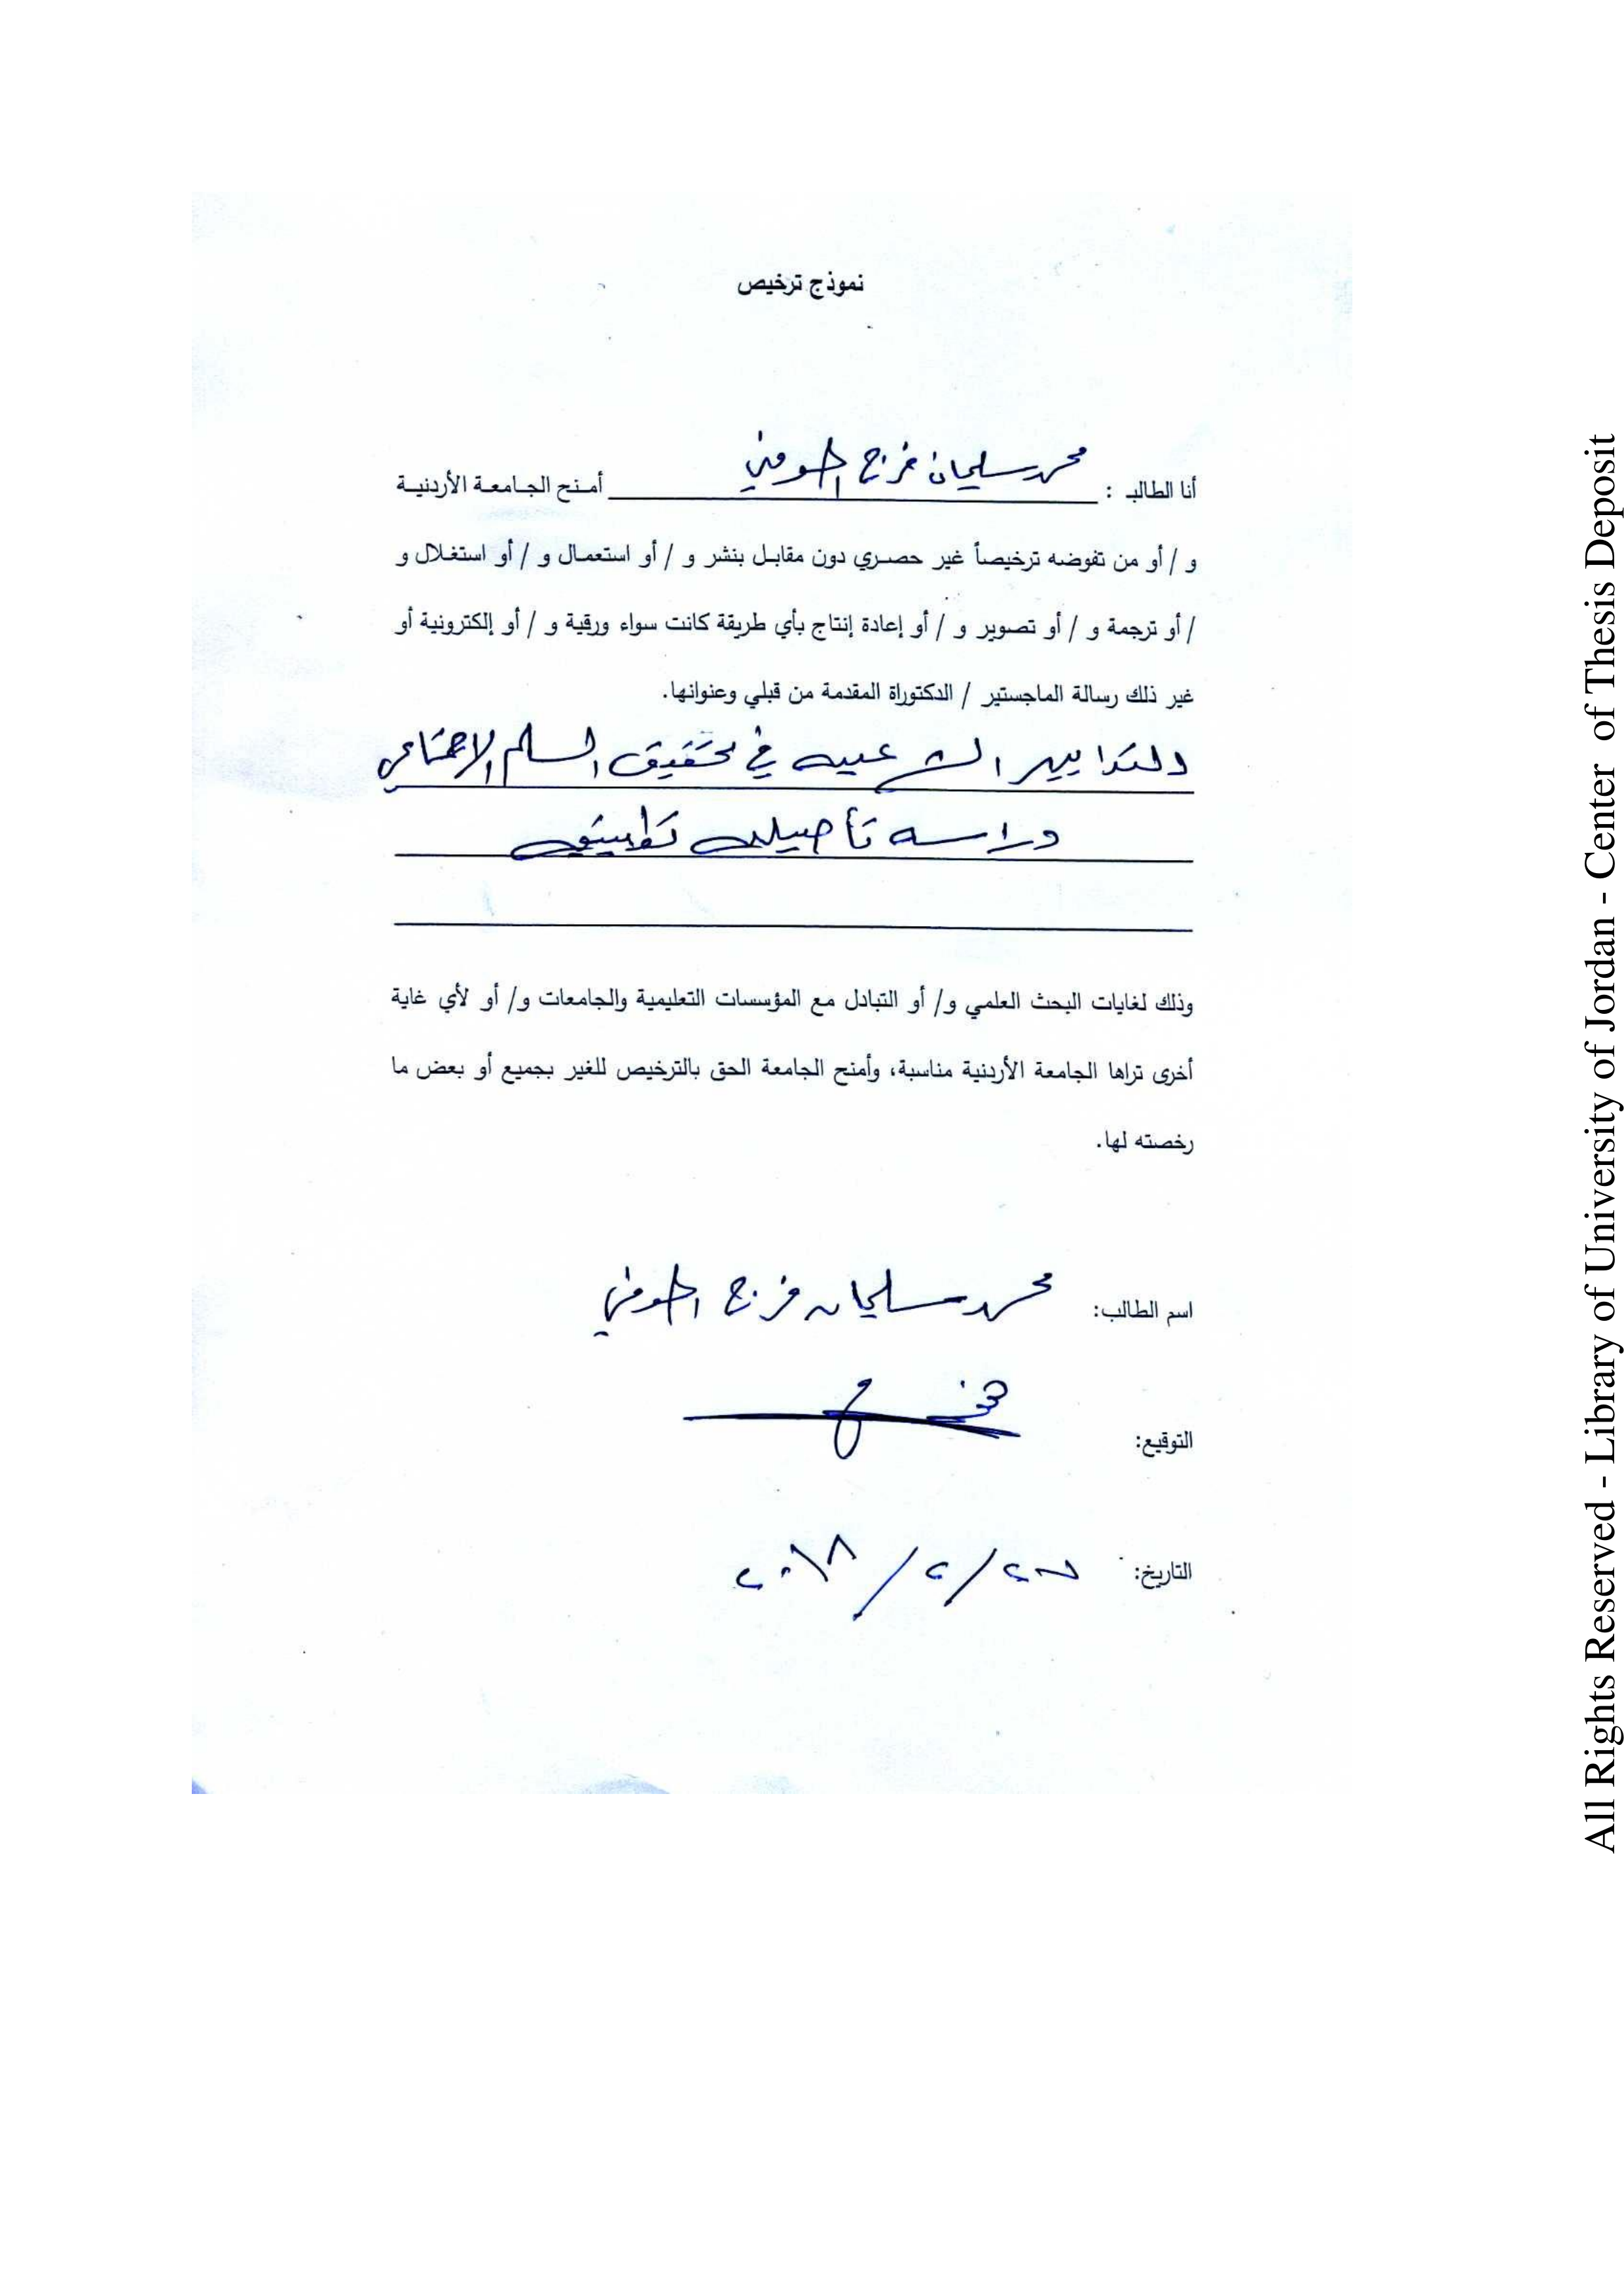 نموذج ترخيص
أنا الطالب : محمد سليمان فرج أمنح الجامعة الأردنية
و / أو من تفوضه ترخيصاً غير حصري دون مقابل بنشر و / أو استعمال و / أو استغلال و
/ أو ترجمة و / أو تصوير و / أو إعادة إنتاج بأي طريقة كانت سواء ورقية و / أو إلكترونية أو
غير ذلك رسالة الماجستير / الدكتوراة المقدمة من قبلي وعنوانها.
التدابير الشرعيه في تحقيق السلم الاجتماعي
دراسه تأصيليه تطبيقيه
وذلك لغايات البحث العلمي و/ أو التبادل مع المؤسسات التعليمية والجامعات و/ أو لأي غاية
أخرى تراها الجامعة الأردنية مناسبة، وأمنح الجامعة الحق بالترخيص للغير بجميع أو بعض ما
رخصته لها.
اسم الطالب: محمد سليمان فرج
التوقيع:
التاريخ: / ٢ / ٢٠١٨
All Rights Reserved - Library of University of Jordan - Center of Thesis Deposit